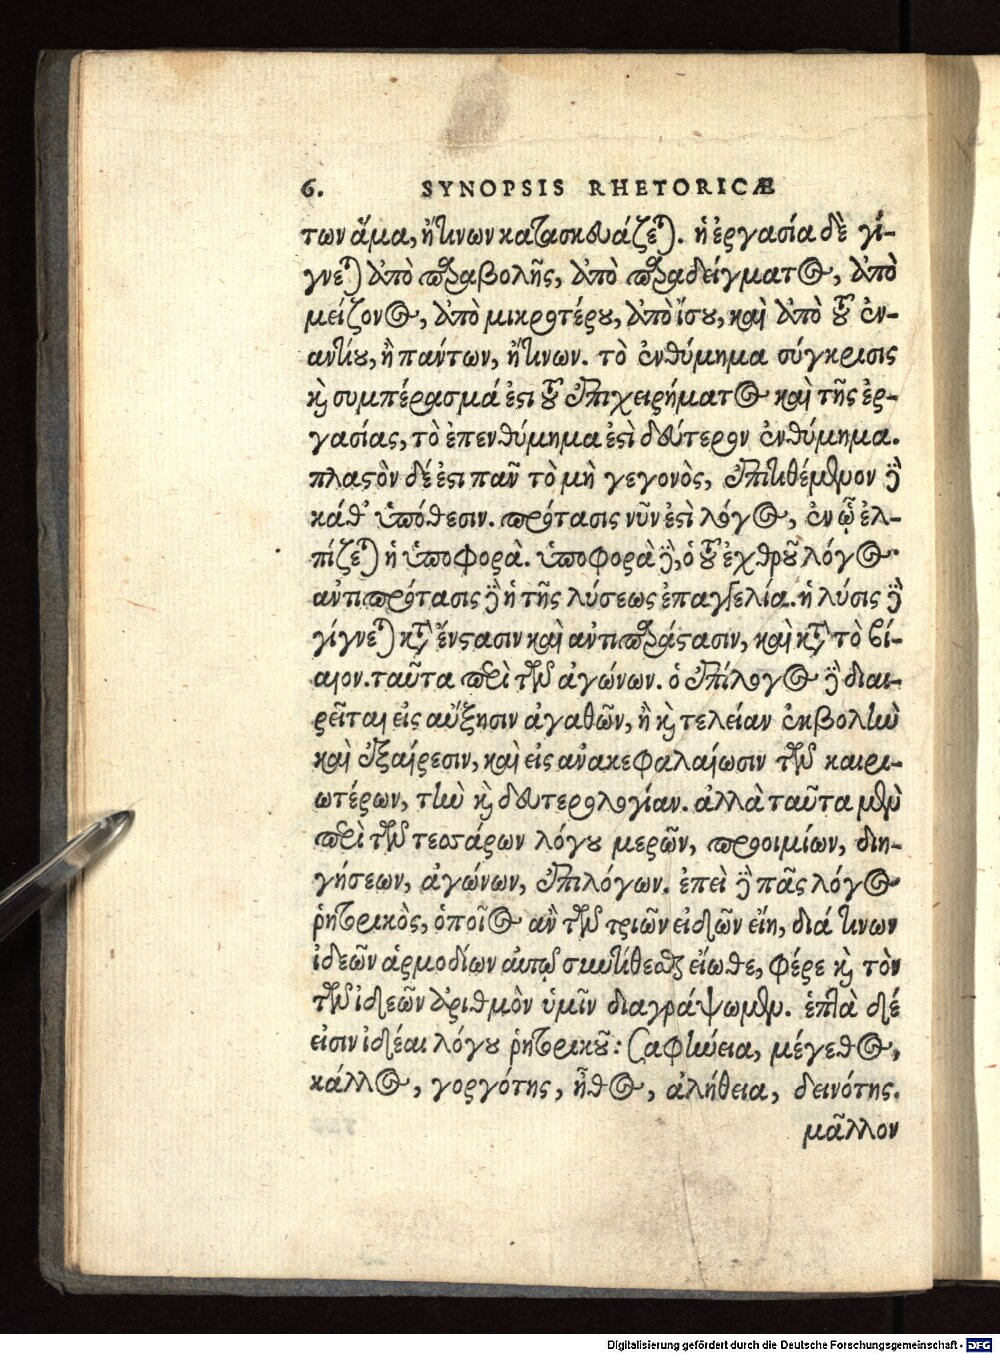 6. SYNOPSIS RHETORICÆ
των ἅμα, ἤ τινων κατασκευάζεται. ἡ ἐργασία δὲ γί-
γνεται ἀπὸ παραβολῆς, ἀπὸ παραδείγματος, ἀπὸ
μείζονος, ἀπὸ μικροτέρου, ἀπὸ ἴσου, καὶ ἀπὸ τοῦ ἐν-
αντίου, ἢ πάντων, ἤ τινων. τὸ ἐνθύμημα σύγκρισις
καὶ συμπέρασμά ἐστι τοῦ ἐπιχειρήματος καὶ τῆς ἐρ-
γασίας, τὸ ἐπενθύμημα ἐστὶ δεύτερον ἐνθύμημα.
πλαστὸν δέ ἐστι πᾶν τὸ μὴ γεγονὸς, ἐπιτιθέμενον δὲ
κάθ' ὑπόθεσιν. πρότασις νῦν ἐστὶ λόγος, ἐν ᾧ ἐλ-
πίζεται ἡ ὑποφορὰ. ὑποφορὰ δὲ, ὁ τοῦ ἐχθροῦ λόγος.
αντιπρότασις δὲ ἡ τῆς λύσεως ἐπαγγελία. ἡ λύσις δὲ
γίγνεται κατ' ἔνστασιν καὶ αντιπαράστασιν, καὶ κατὰ τὸ βί-
αιον. ταῦτα περὶ τῶν ἀγώνων. ὁ ἐπίλογος δὲ διαι-
ρεῖται εἰς αὔξησιν ἀγαθῶν, ἢ καὶ τελείαν ἐκβολὴν
καὶ ἐξαίρεσιν, καὶ εἰς ανακεφαλαίωσιν τῶν καιρι-
ωτέρων, τὴν καὶ δευτερολογίαν. ἀλλὰ ταῦτα μὲν
περὶ τῶν τεσσάρων λόγου μερῶν, προοιμίων, διη-
γήσεων, ἀγώνων, ἐπιλόγων. ἐπεὶ δὲ πᾶς λόγος
ῥητορικὸς, ὁποῖος αν τῶν τριῶν εἰδῶν εἴη, διά τινων
ἰδεῶν ἁρμοδίων αὐτῷ συντίθεσθαι εἴωθε, φέρε καὶ τὸν
τῶν ἰδεῶν ἀριθμὸν ὑμῖν διαγράψωμεν. ἑπτὰ δέ
εἰσιν ἰδέαι λόγου ῥητορικοῦ: Σαφήνεια, μέγεθος,
κάλλος, γοργότης, ἦθος, ἀλήθεια, δεινότης.
μᾶλλον
Digitalisierung gefördert durch die Deutsche Forschungsgemeinschaft - DFG